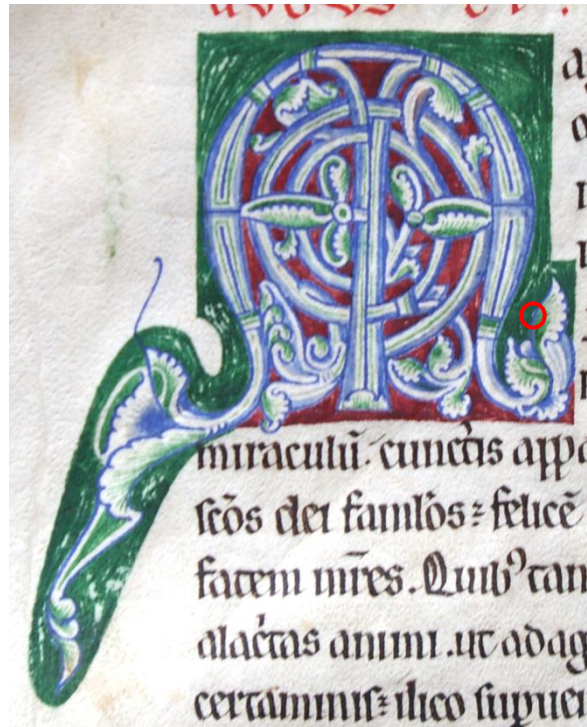 M
miraculū. cunctis app
scōs dei famlos: felicē
facem mr̄es. Quibꝰ tan
alac̄tas animi. ut adag
certaminis: ilico supue